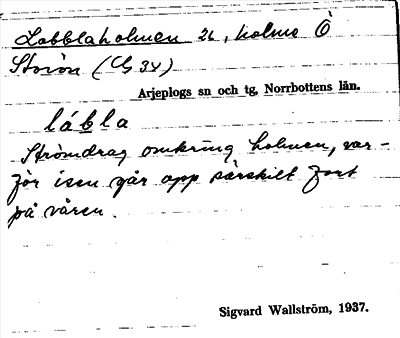 Labblaholmen 26, holme Ö
Storön (Cg 34)
Arjeplogs sn och tg, Norrbottens län.
lábla
Strömdrag omkring holmen, var-
för isen går opp särskilt fort
på våren.
Sigvard Wallström, 1937.